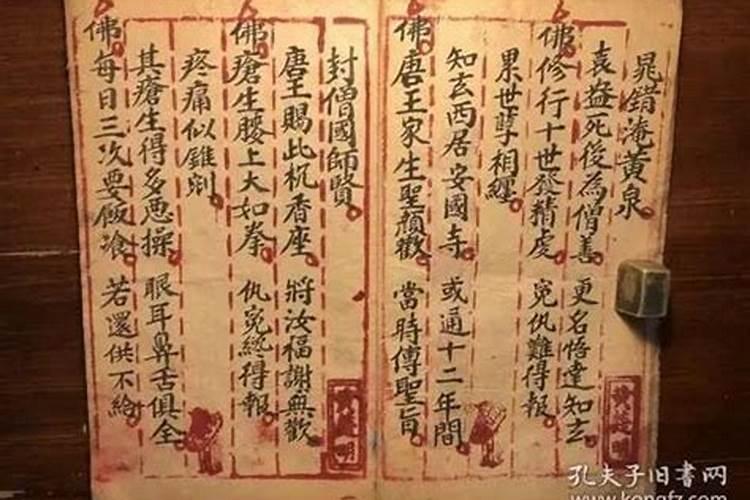 晁錯淹黄泉
袁盎死後為僧善 更名悟達知玄
佛修行十世發精虔 寃仇難得報
累世孽相纏
知玄西居安國寺 或通十二年間
佛唐王家生聖顏歡 當時傳聖旨
封僧國師賢
唐王賜此杌香座 將汝福謝無歡
佛瘡生腰上大如拳 仇寃終得報
疼痛似錐剜
其瘡生得多恶操 眼耳鼻舌俱全
佛每日三次要飯飡 若還供不給
孔夫子旧书网
www.kongfz.com